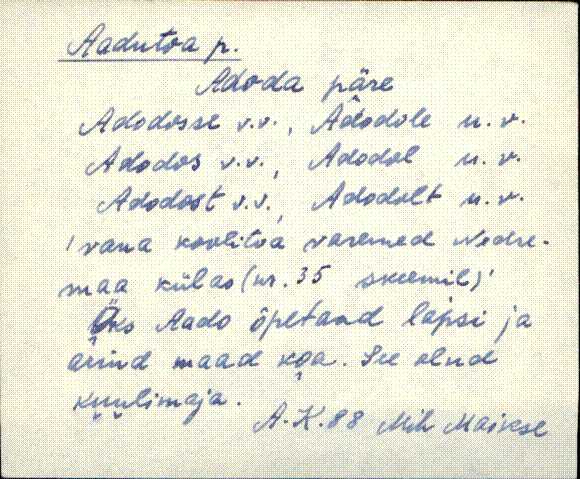 Aadutoa p.
Adoda päre
Adodosse v.v., Adodole u. v.
Adodos v.v., Adodol u. v.
Adodost v.v., Adodolt u. v.
'vana koolitoa varemed Nedre-
maa külas (nr. 35 skeemil)'
Üks Aado õpetand lapsi ja
arind maad koa. See olnd
kuulimaja.
A.K. 88 Mih Maikse